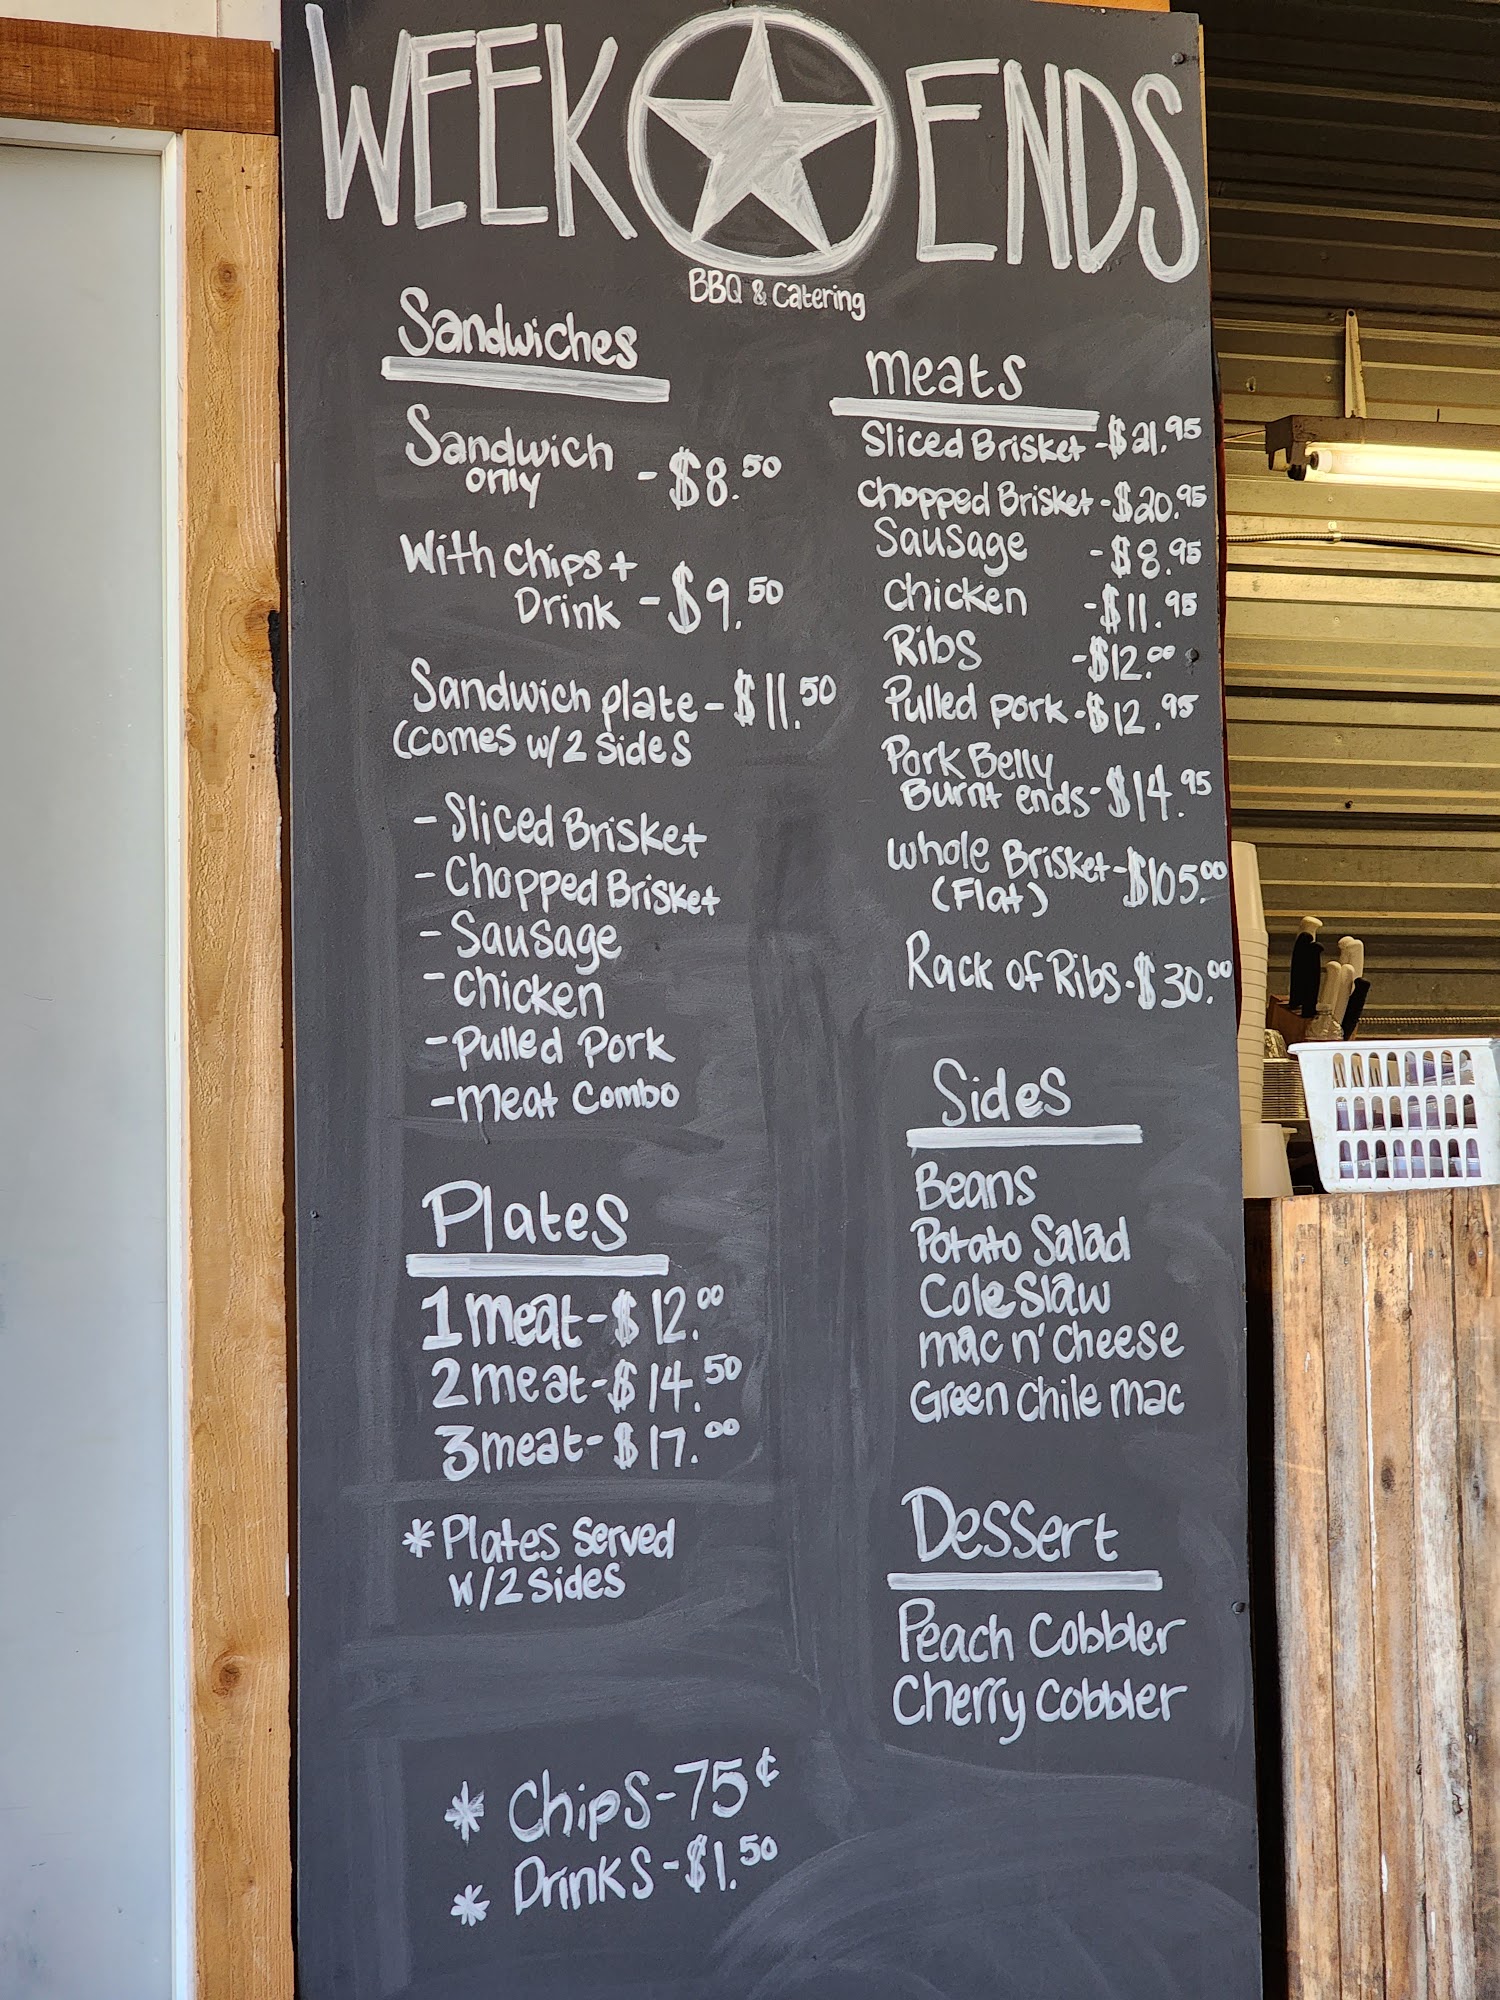 WEEK ENDS
BBQ & Catering
Sandwiches
Sandwich
only - $8.50
With chips +
Drink - $9.50
Sandwich plate - $11.50
(comes w/2 sides
- Sliced Brisket
- Chopped Brisket
- Sausage
- Chicken
- Pulled Pork
- Meat Combo
Plates
1 meat - $12.00
2 meat - $14.50
3 meat - $17.00
* Plates Served
w/2 sides
* Chips - 75¢
* Drinks - $1.50
Meats
Sliced Brisket - $21.95
Chopped Brisket - $20.95
Sausage - $8.95
Chicken - $11.95
Ribs - $12.00
Pulled Pork - $12.95
Pork Belly
Burnt ends - $14.95
Whole Brisket - $105.00
(Flat)
Rack of Ribs - $30.00
Sides
Beans
Potato Salad
Cole Slaw
Mac n' Cheese
Green Chile Mac
Dessert
Peach Cobbler
Cherry Cobbler